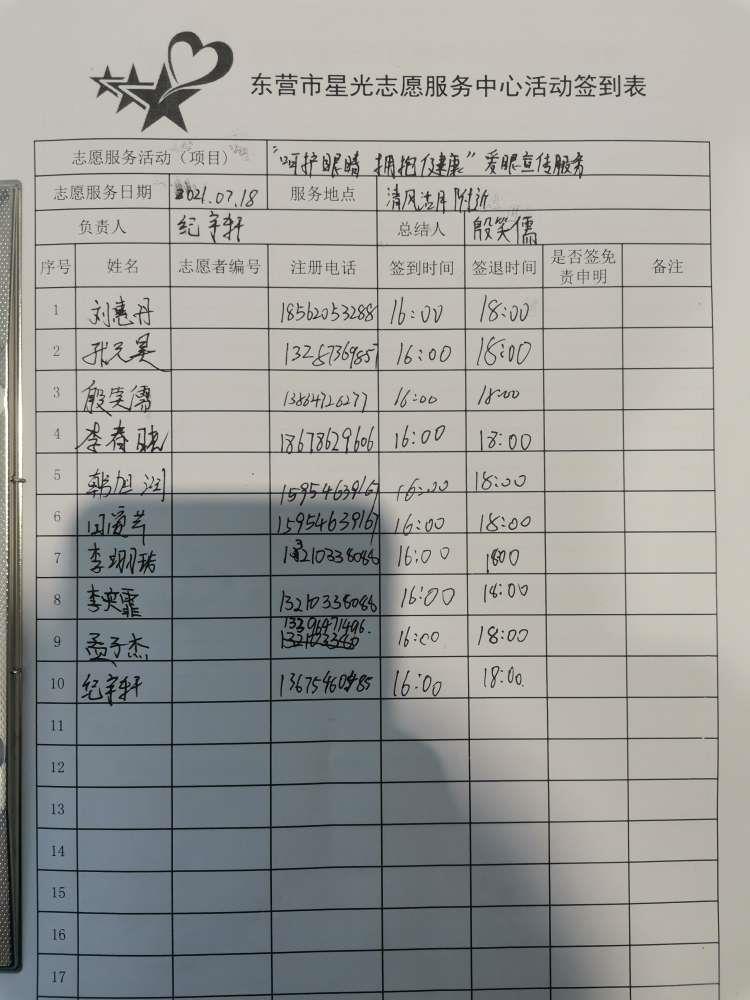 东营市星光志愿服务中心活动签到表
志愿服务活动（项目） “呵护眼睛 拥抱健康”爱眼宣传服务
志愿服务日期 2021.07.18 服务地点 清风古月附近
负责人 纪宇轩 总结人 殷笑儒
序号 姓名 志愿者编号 注册电话 签到时间 签退时间 是否签免责申明 备注
1 刘惠丹 18562053288 16:00 18:00
2 16:00 18:00
3 殷笑儒 13864726277 16:00 18:00
4 李春 18678629606 16:00 18:00
5 韩旭润 15954639167 16:00 18:00
6 15954639167 16:00 18:00
7 李翊 13210338088 16:00 1800
8 李奕霏 13210338088 16:00 18:00
9 孟子杰 16:00 18:00
10 纪宇轩 16:00 18:00
11
12
13
14
15
16
17